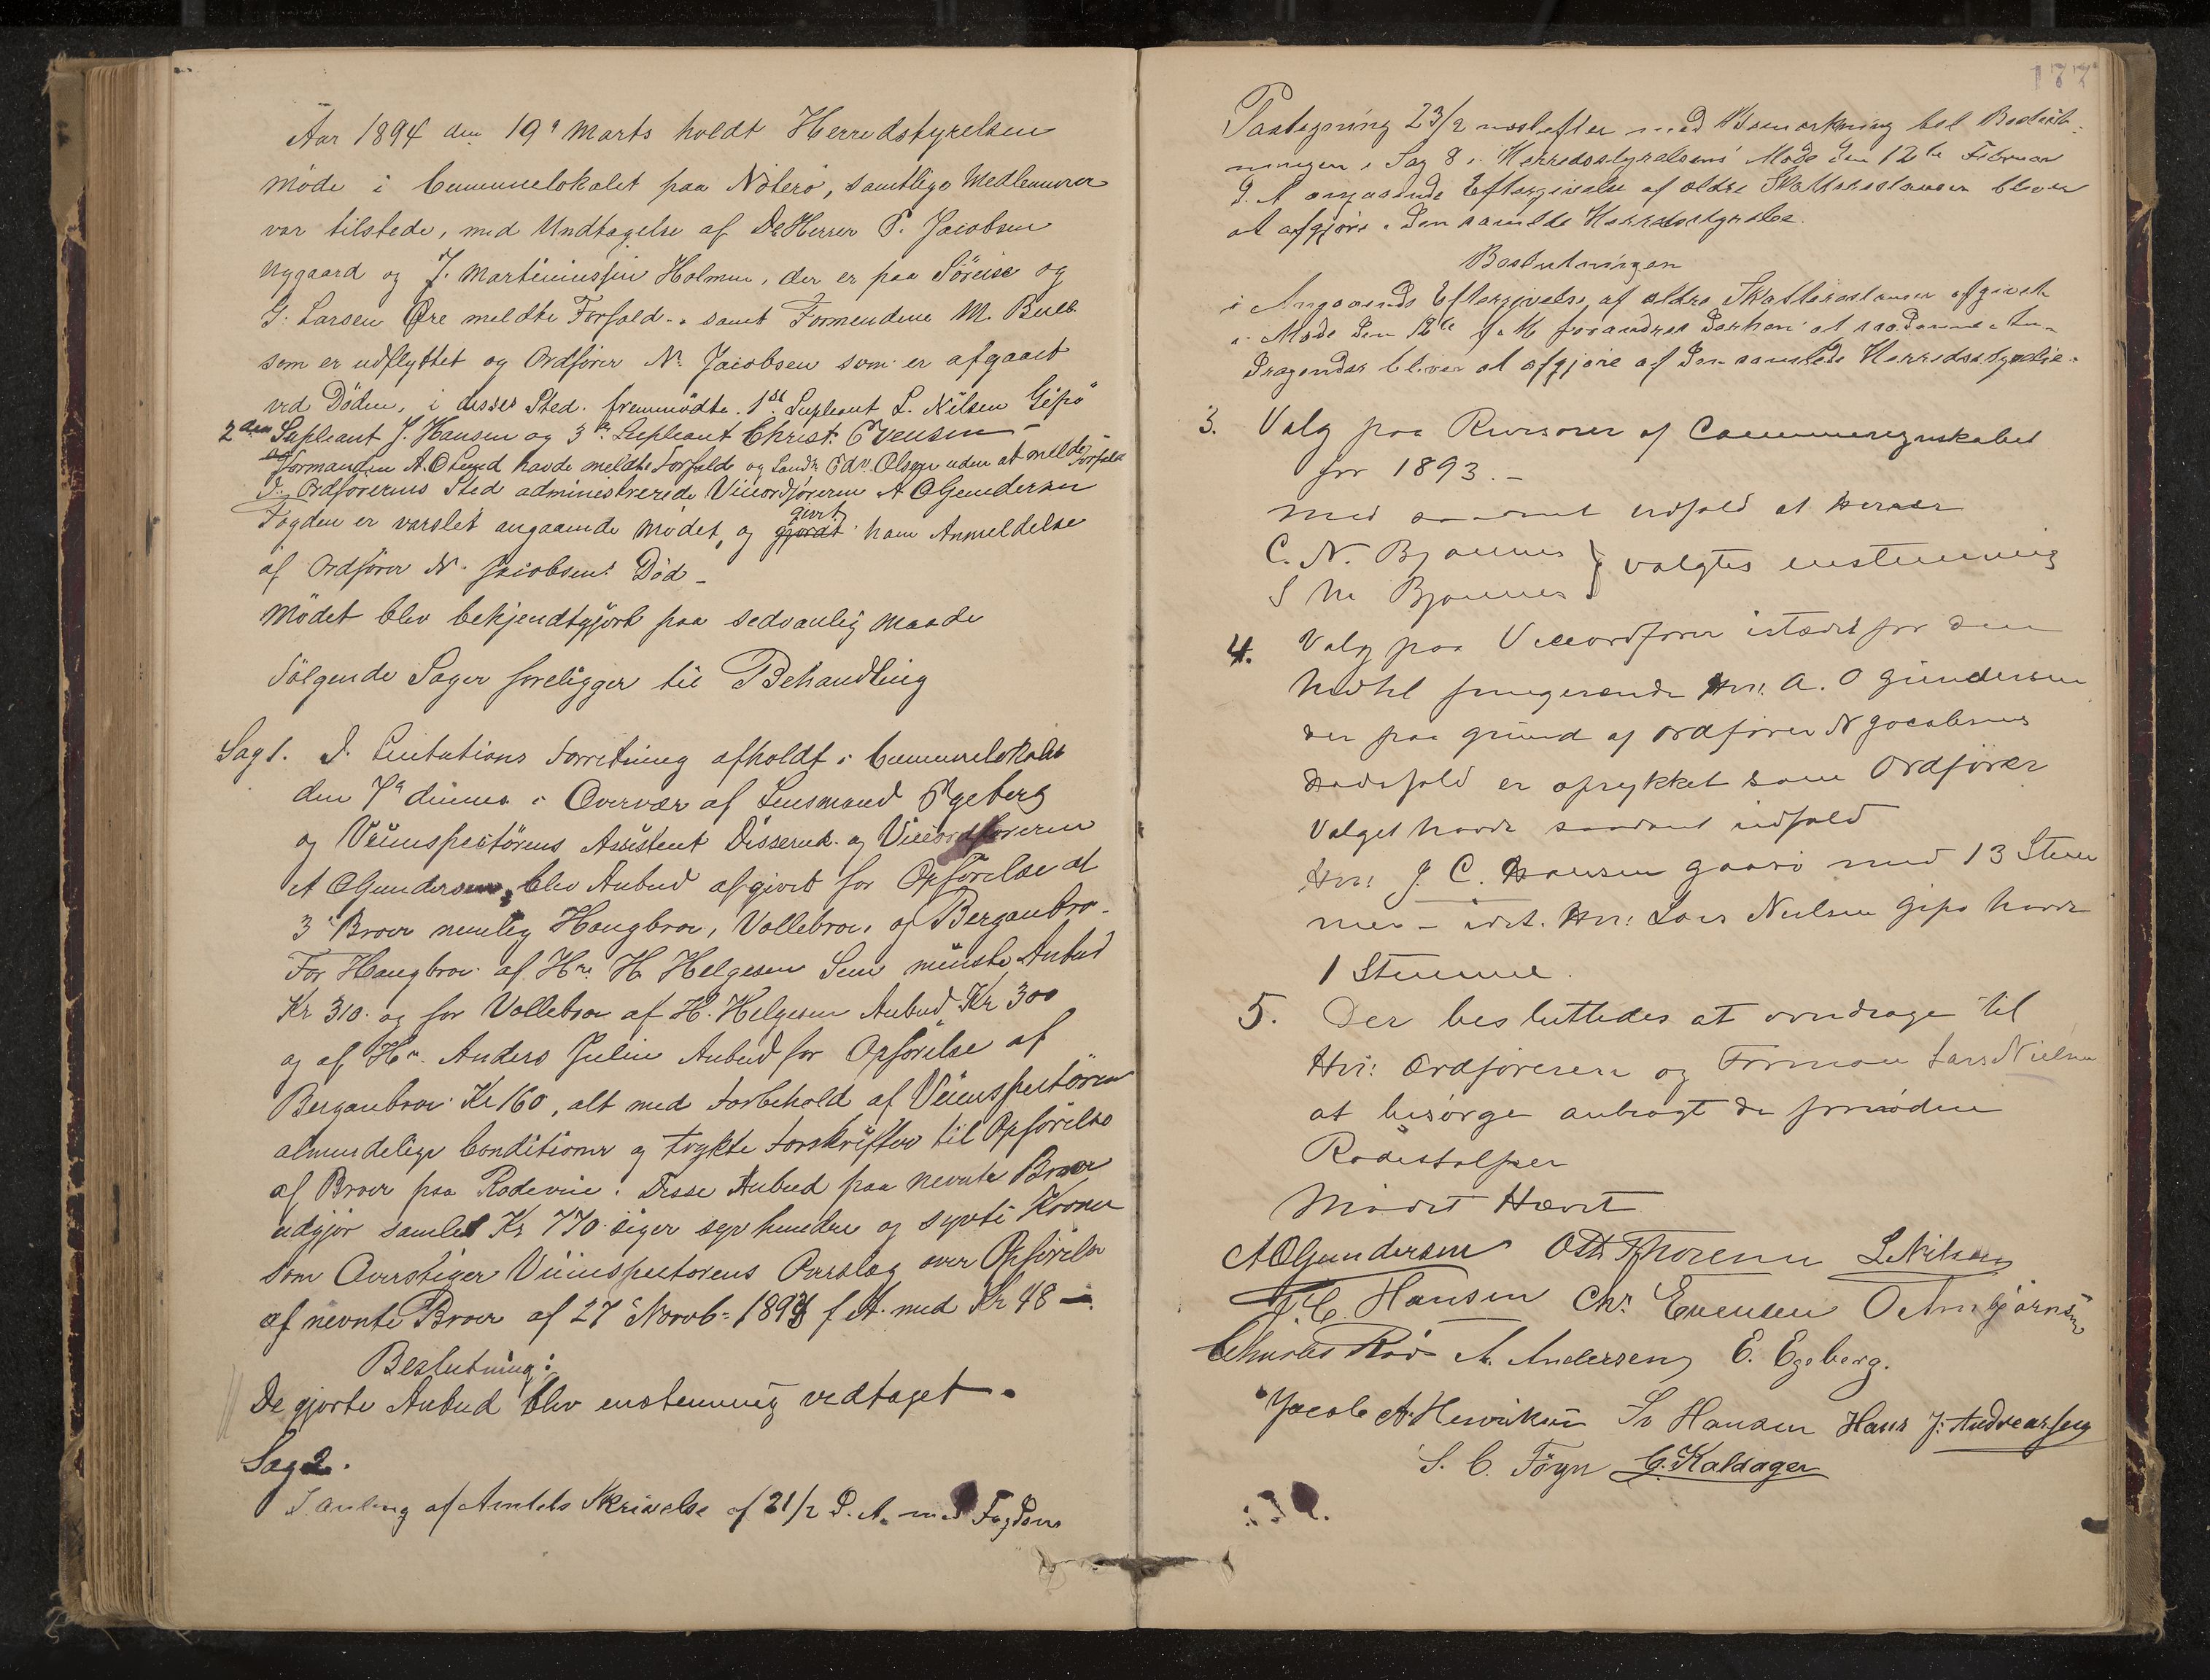 Aar 1894 den 19de Marts holdt Herredstyrelsen
Møde i Communelokalet paa Nøterø, samtlige Medlemmer
var tilstede, med Undtagelse af De Herrer P. Jacobsen
Nygaard og J. Martiniussen Holmen, der er paa Søreise og
G. Larsen Øre meldte Forfald. samt Formendene M. Bull
som er udflyttet og Ordfører N. Jacobsen som er afgaaet
ved Døden, i disses Sted fremmødte 1ste Supleant L. Nilsen Gipø
2den Supleant J. Hansen og 3die Supleant Christ. Evensen
og Formanden A. O Lund havde meldt Forfald og Edv. Olsen uden at melde Forfald
I Ordførerens Sted administrerede Viceordføreren A O Gundersen
Fogden er varslet angaaende Mødet, og gjordt givet ham Anmeldelse
af Ordfører N. Jacobsens Død
Mødet blev bekjendtgjort paa sedvanlig Maade
Følgende Sager foreligger til Behandling
Sag 1. I Licitations Forretning afholdt i Communelokalet
den 7de dennes i Overvær af Lensmand Egeberg
og Veiinspectørens Assistent Disserud og Viceordføreren
A O Gundersen, blev Anbud afgivet for Opførelse at
3 Broer nemlig Haugbroe, Vollebroe, og Berganbro
For Haugbroe af Hr. H Helgesen Sem minste Anbud
Kr 310 og for Vollebroe af H. Helgesen Anbud Kr 300
og af Hr. Anders Julin Anbud for Opførelse af
Berganbroe Kr 160, alt med Forbehold af Veiinspectørens
almindelige Conditioner og trykte Forskrifter til Opførelse
af Broer paa Rodeveie. Disse Anbud paa nevnte Broer
udgjør samlet Kr 770 siger syv hundre og sytti Kroner
som Overstiger Veiinspectorens Overslag over Opførelse
af nevnte Broer af 27de Novb. 1893 f A. med Kr 48 —
Beslutning:
De gjorte Anbud blev enstemmig vedtaget.
Sag 2.
I Anlling af Amtets Skrivelse af 21/2 d. A. med Fogdens
177
Paategning 23/2 nestefter med Bemerkning tel Beslut-
ningen i Sag 8 i Herredsstyrelsens Møde den 12te Februar
d. A angaaende Eftergivelse af ældre Skatterestancer bliver
at afgjøre i den samlede Herredsstyrelse.
Beslutningen
i Angaaende Eftergivelse af ældre Skatterestancer afgivet
i Møde den 12te f M forandres derhen at saadanne An-
dragender bliver at afgjøre af den samlede Herredsstyrelse.
3. Valg paa Revisorer af Communeregnskabet
for 1893.-
med saadant udfald at herrer
C. N. Bjønnes
S M Bjønnes } valgtes enstemmig
4. Valg paa Viceordfører istedet for den
hidtil fungerende Hr. A. O Gundersen
der paa grund af ordfører N Jacobsens
dødsfald er oprykket som Ordfører
Valget havde saadant udfald
Hr. J. C. Hansen Gaasø med 13 Stem
mer – idet. Hr: Lars Nielsen Gipø havde
1 Stemme.
5. Der besluttedes at overdrage til
Hr: Ordføreren og Forman Lars Nielsen
at besørge anbragt de fornødne
Rodestolper
Mødet Hævet
A O Gundersen Otto Thoresen L Nilsen
J. C. Hansen Chr. Evensen O Arnbjørnsen
Charles Rød A. Andersen E. Egeberg.
Jacob A. Henriksen Sv Hansen Hans J. Andreassen
S. C. Föyn C. Kaldager